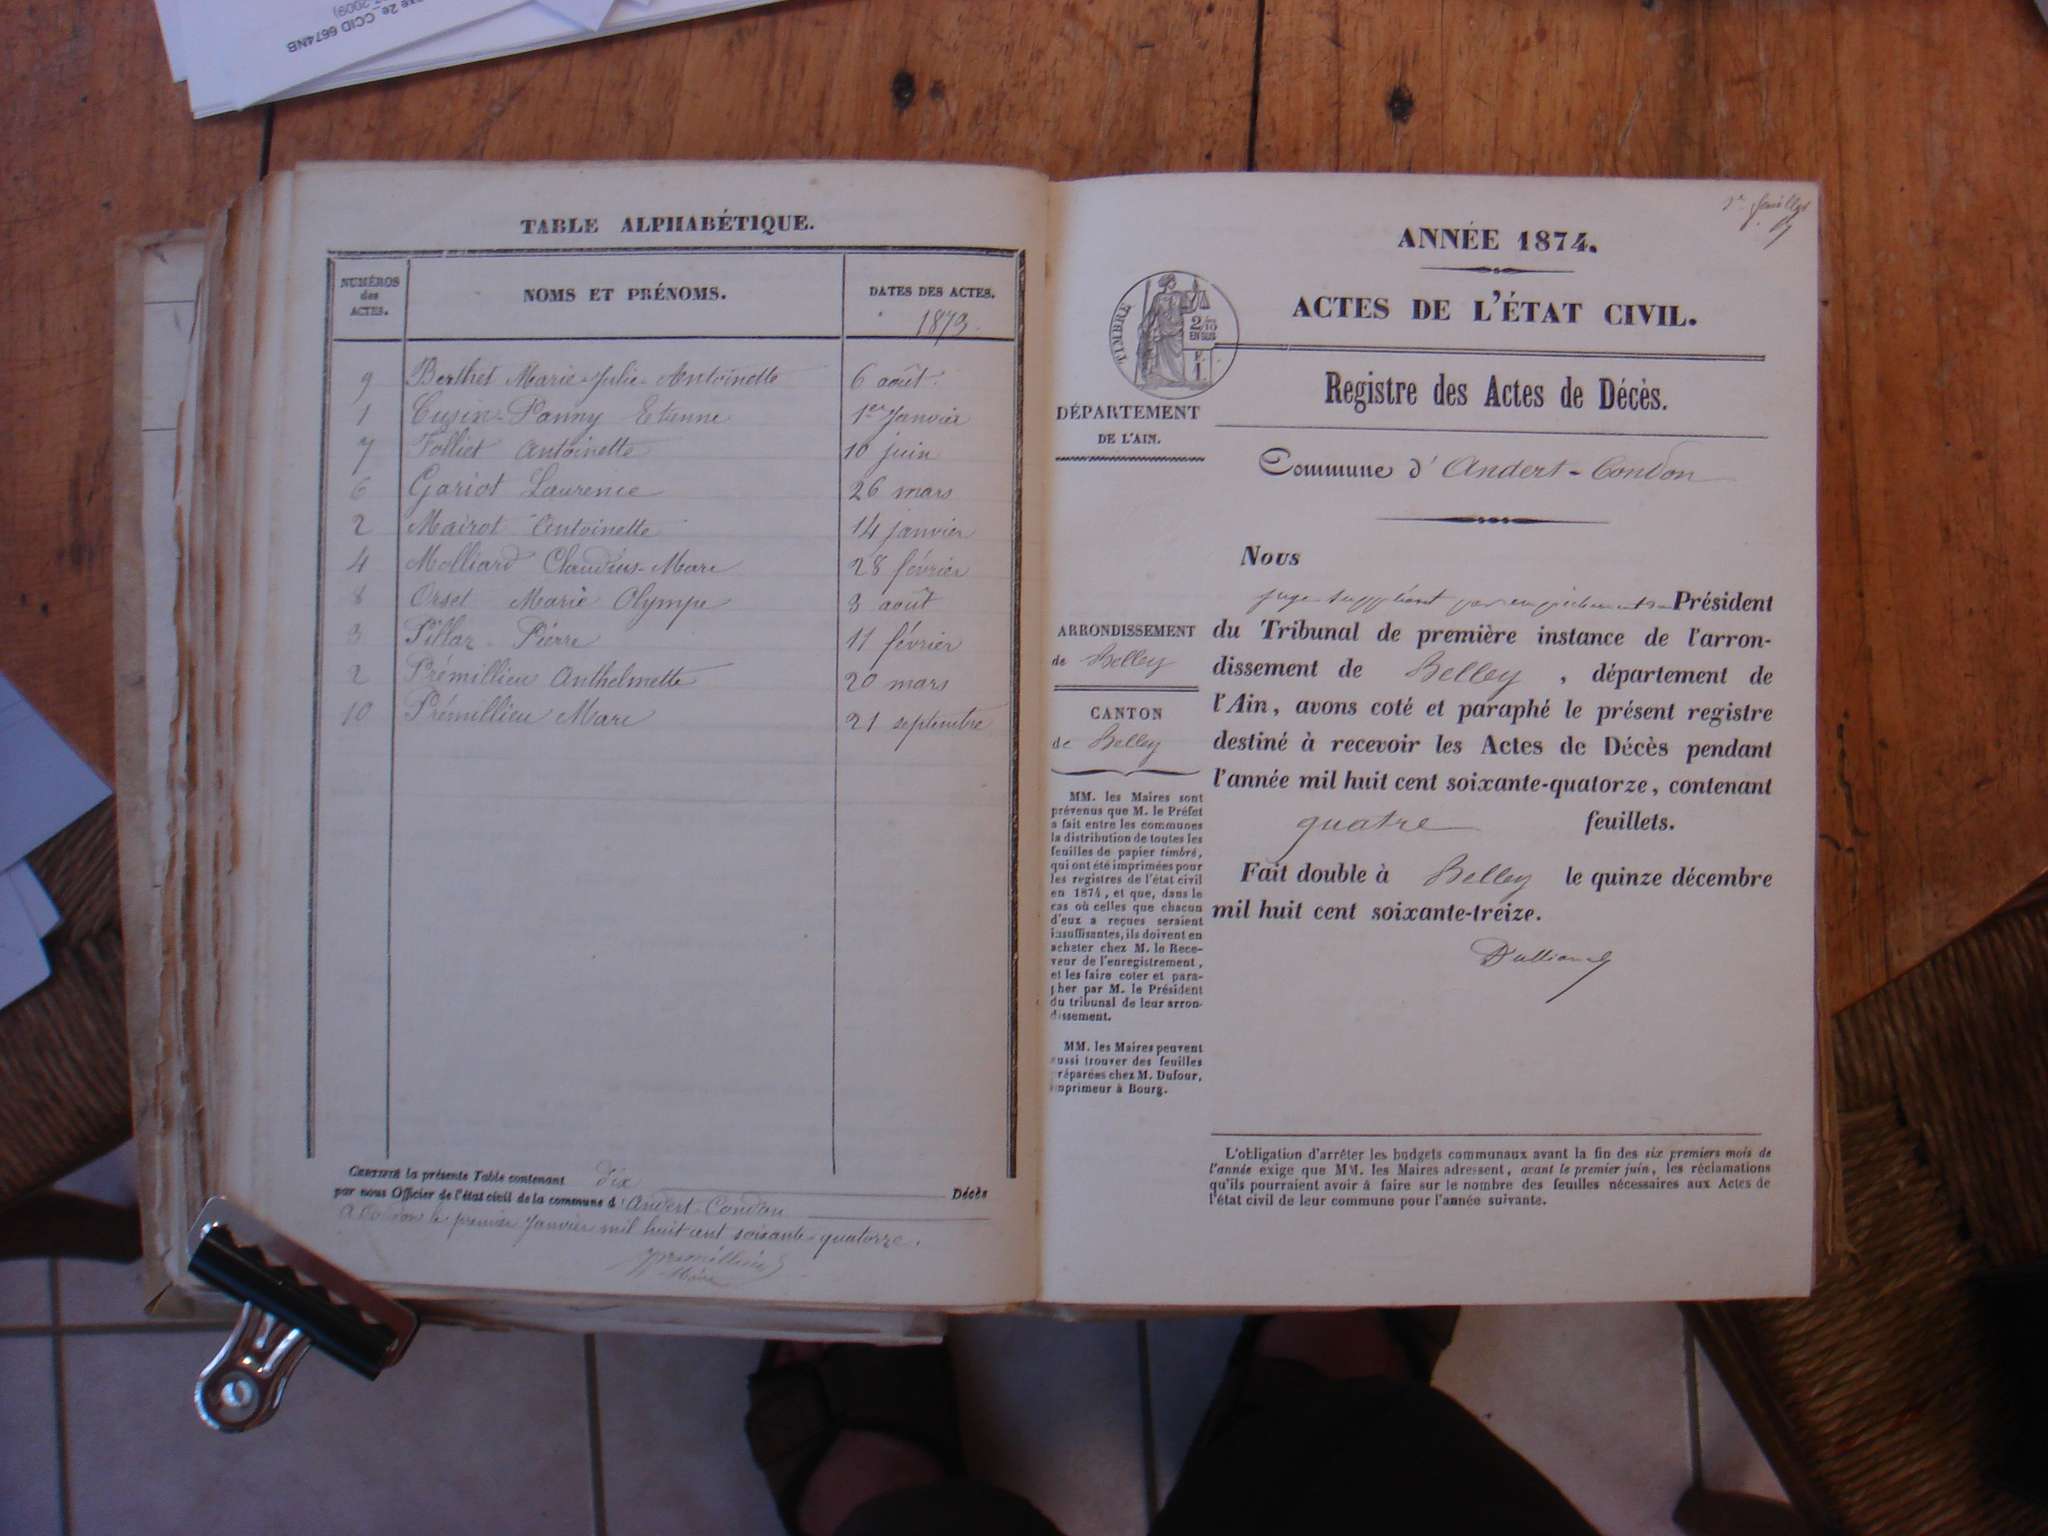 2e, CCID 6674NB
2009)
TABLE ALPHABÉTIQUE.
NUMÉROS des ACTES.
NOMS ET PRÉNOMS.
DATES DES ACTES.
1873.
9 Berthet Marie-Julie-Antoinette 6 août.
1 Cusin-Fanny Etienne 1er Janvier
7 Folliet Antoinette 10 juin
6 Gariot Laurence 26 mars
2 Mairot Antoinette 14 janvier
4 Molliard Claudius-Marc 28 février
8 Orset Marie Olympe 3 août
3 Pillaz Pierre 11 février
2 Prémillieu Anthelmette 20 mars
10 Prémillieu Marc 21 septembre
CERTIFIÉ la présente Table contenant dix Décès
par nous Officier de l'état civil de la commune d'Andert-Condon
A Condon le premier Janvier mil huit cent soixante-quatorze.
Prémillieu
Maire
1er feuillet
ANNÉE 1874.
ACTES DE L'ÉTAT CIVIL.
TIMBRE
2/10
EN SUS
Registre des Actes de Décès.
DÉPARTEMENT
DE L'AIN.
Commune d'Andert-Condon
Nous
juge suppléant par empêchement Président
du Tribunal de première instance de l'arron-
dissement de Belley, département de
l'Ain, avons coté et paraphé le présent registre
destiné à recevoir les Actes de Décès pendant
l'année mil huit cent soixante-quatorze, contenant
quatre feuillets.
Fait double à Belley le quinze décembre
mil huit cent soixante-treize.
ARRONDISSEMENT
de Belley
CANTON
de Belley
MM. les Maires sont
prévenus que M. le Préfet
a fait entre les communes
la distribution de toutes les
feuilles de papier timbré,
qui ont été imprimées pour
les registres de l'état civil
en 1874, et que, dans le
cas où celles que chacun
d'eux a reçues seraient
insuffisantes, ils doivent en
acheter chez M. le Rece-
veur de l'enregistrement,
et les faire coter et para-
pher par M. le Président
du tribunal de leur arron-
dissement.
MM. les Maires peuvent
aussi trouver des feuilles
préparées chez M. Dufour,
imprimeur à Bourg.
L'obligation d'arrêter les budgets communaux avant la fin des six premiers mois de
l'année exige que MM. les Maires adressent, avant le premier juin, les réclamations
qu'ils pourraient avoir à faire sur le nombre des feuilles nécessaires aux Actes de
l'état civil de leur commune pour l'année suivante.